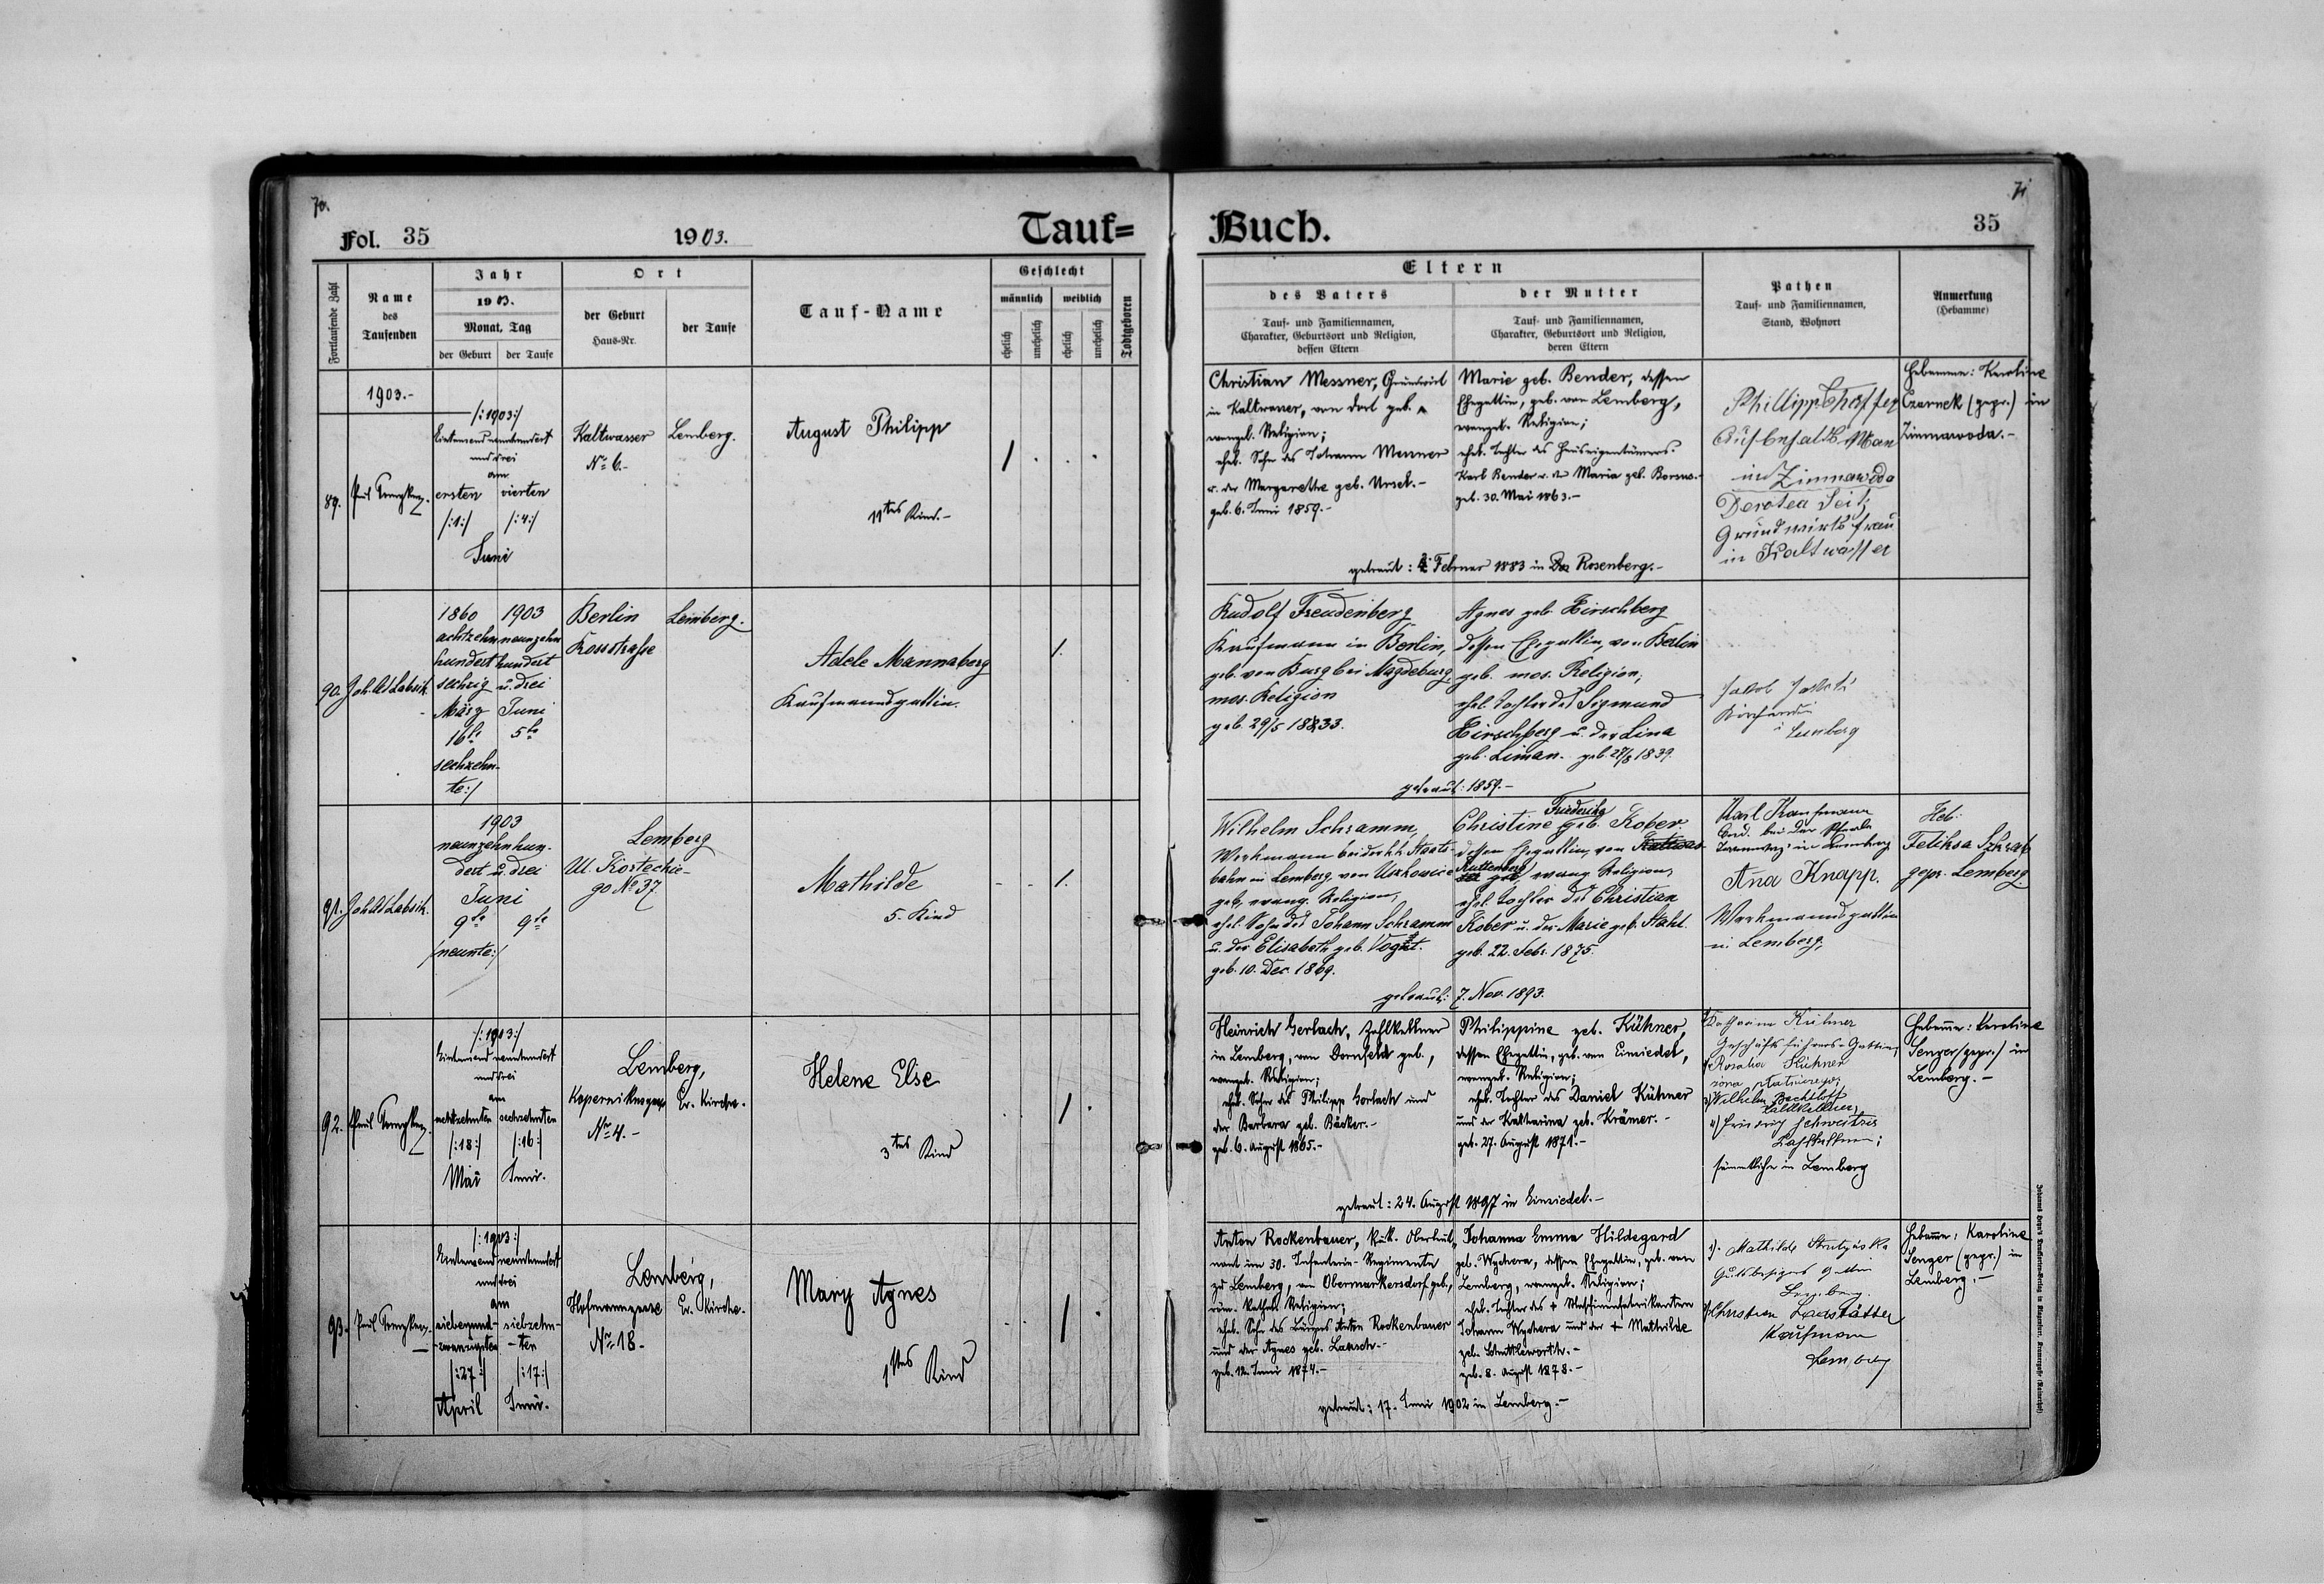 70.
Fol. 35
1903.
Tauf=
Fortlaufende Zahl
Name
des
Taufenden
Jahr
1903.
Monat, Tag
der Geburt
der Taufe
Ort
der Geburt
Haus-Nr.
der Taufe
Tauf-Name
Geschlecht
männlich
weiblich
ehelich
unehelich
ehelich
unehelich
Todtgeboren
1903.-
89.
/:1903:/
Eintausendneunhundert
und drei
am
ersten
vierten
/:1:/
/:4:/
Juni
Kaltwasser
Nº 6.-
Lemberg.
August Philipp
11tes Kind.-
90.
1860
1903
achtzehn
neunzehn
hundert
hundert
sechzig
u. drei
März
Juni
16te
5te
sechzehn-
te:/
Berlin
Rossstraße
Lemberg.
Adele Mannaberg
Kaufmannsgattin.
91.
1903
neunzehnhun-
dert u. drei
Juni
9te
9te
/neunte:/
Lemberg
Ul. Kosteckie-
go Nº 37.
Mathilde
5. Kind
92.
/:1903:/
Eintausendneunhundert
und drei
am
achtzehnten
sechzehnten
/:18:/
/:16:/
Mai
Juni.
Lemberg,
Kopernikusgasse
Ev. Kirche.
Nr 4.-
Helene Else
3tes Kind
93.
/:1903:/
Eintausendneunhundert
und drei
am
siebenund-
siebzehn-
zwanzigsten
-ten
/:27:/
/:17:/
April
Juni.
Lemberg,
Hofmanngasse
Ev. Kirche.
Nr 18.-
Mary Agnes
1tes Kind
71
Buch.
35
Eltern
des Vaters
Tauf- und Familiennamen,
Charakter, Geburtsort und Religion,
dessen Eltern
der Mutter
Tauf- und Familiennamen,
Charakter, Geburtsort und Religion,
deren Eltern
Pathen
Tauf- und Familiennamen,
Stand, Wohnort
Anmerkung
(Hebamme)
Christian Messner, Grundwirt
in Kaltwasser, von dort geb.
evangel. Religion;
ehel. Sohn des Johann Messner
u. der Margarethe geb. Ursel.-
geb. 6. Juni 1859.-
Marie geb. Bender, dessen
Ehegattin, geb. von Lemberg,
evangel. Religion;
ehel. Tochter des Hauseigentümers
Karl Bender u. d. Maria geb. Borsus.-
geb. 30. Mai 1863.-
getraut: 2. Februar 1883 in Rosenberg.-
in Zimnawoda
Dorotea Seitz
Grundwirts frau
in Kaltwasser
Hebamme: Karoline
Czarnek (gepr.) in
Zimnawoda.-
Rudolf Freudenberg
Kaufmann in Berlin,
geb. von Burg bei Magdeburg
mos. Religion
geb. 29/5 1833.
Agnes geb. Hirschberg
dessen Ehegattin, von Berlin
geb. mos. Religion;
ehel. Tochter des Sigmund
Hirschberg u. der Lina
geb. Liman. geb. 21/8 1839.
getraut: 1859.-
Lemberg
Wilhelm Schramm,
Werkmann bei der k.k. Staats-
bahn in Lemberg von Uszkowice
geb., evang. Religion,
ehel. Sohn des Johann Schramm
u. der Elisabeth geb. Vogt.
geb. 10. Dec. 1869.
Friderike
Christine geb. Kober
dessen Ehegattin, von
Ruttenberg
geb., evang. Religion,
ehel. Tochter des Christian
Kober u. der Marie geb. Stahl.
geb. 22. Febr. 1875.
getraut: 7. Nov. 1893.
Karl Kaufmann
Anna Knapp.
Werkmannsgattin
in Lemberg.
Heb:
Feliksa
gepr. Lemberg
Heinrich Gerlach, Zahlkellner
in Lemberg, von Dornfeld geb.,
evangel. Religion;
ehel. Sohn des Philipp Gerlach und
der Barbara geb. Bäcker.-
geb. 6. August 1865.-
Philippine geb. Kühner,
dessen Ehegattin, geb. von Einsiedel,
evangel. Religion;
ehel. Tochter des Daniel Kühner
und der Katharina geb. Krämer.-
geb. 27. August 1871.-
getraut: 24. August 1897 in Einsiedel.-
Katharina Kühner
Geschäftsführers-Gattin,
Rosalia Kühner
3) Wilhelm Bechtloff
Zahlkellner,
4)
sämmtliche in Lemberg
Hebamme: Karoline
Senger (gepr.) in
Lemberg.-
Anton Rockenbauer, k.u.k. Oberleut-
nant im 30. Infanterie-Regimente
zu Lemberg, von Obermarkersdorf geb.,
röm. kathol. Religion;
ehel. Sohn des Bürgers Anton Rockenbauer
und der Agnes geb. Lausch.-
geb. 12. Juni 1874.-
Johanna Emma Hildegard
geb. Wychera, dessen Ehegattin, geb. von
Lemberg, evangel. Religion;
ehel. Tochter des + Maschinenfabrikanten
Johann Wychera und der + Mathilde
geb. Schuttleworth.-
geb. 8. August 1878.-
getraut: 17. Juni 1902 in Lemberg.-
1). Mathilde
Gutsbesitzers Gattin
Lemberg.
Christian Laastätter
Kaufmann
Lemberg
Hebamme: Karoline
Senger (gepr.) in
Lemberg.-